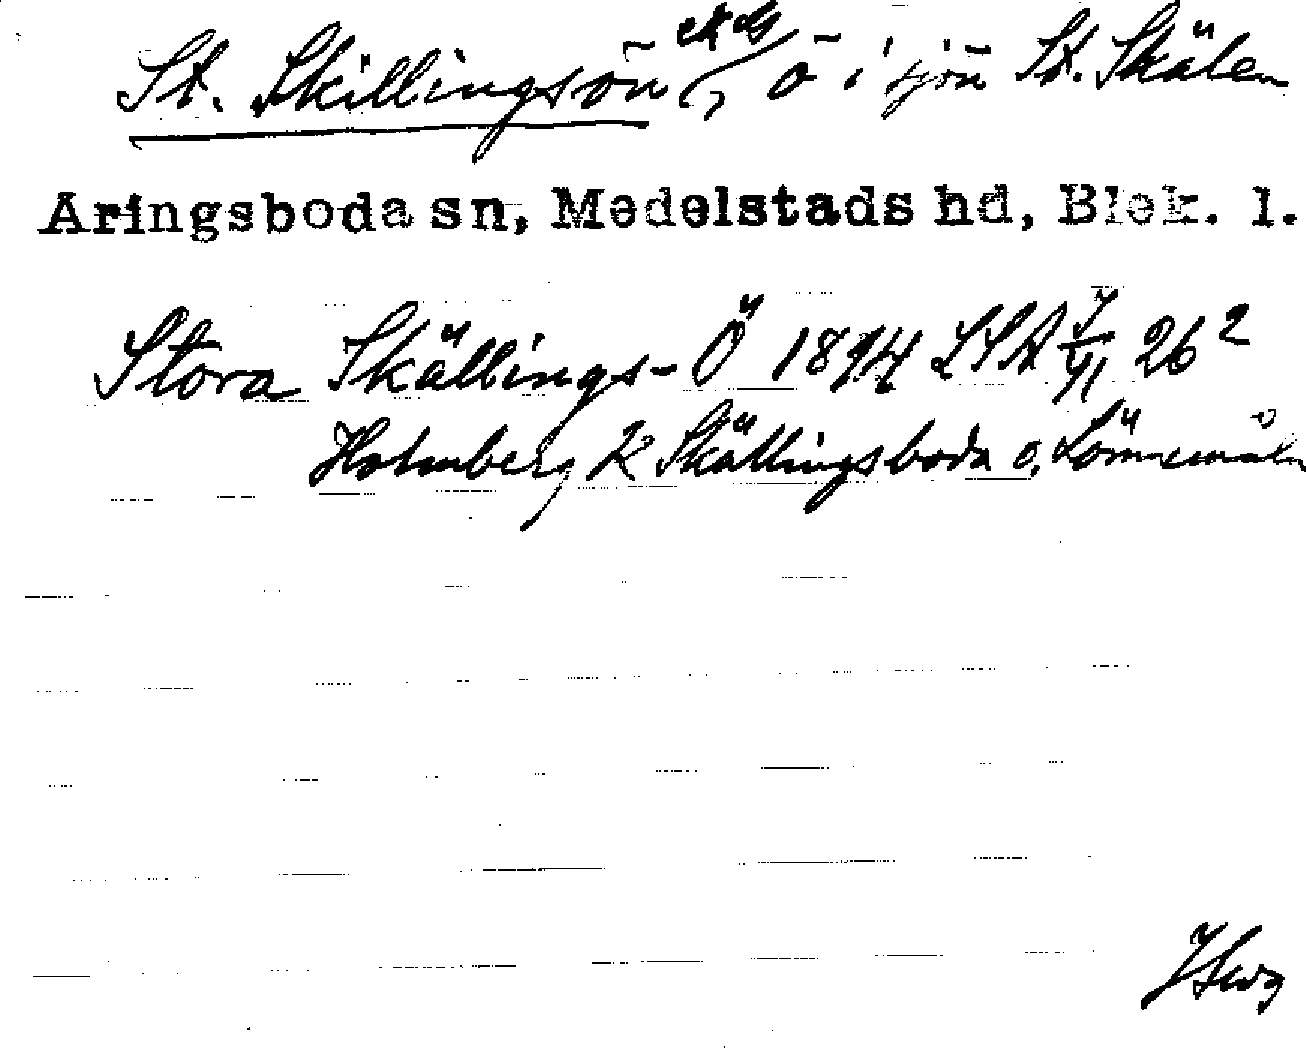 St. Skillingsön ek ds, ö i sjön St. Skälen
Aringsboda sn, Medelstads hd, Blek. l.
Stora Skällings-Ö 1894 LSA 26²
Holmberg K Skällingsboda o. Lönnemåla